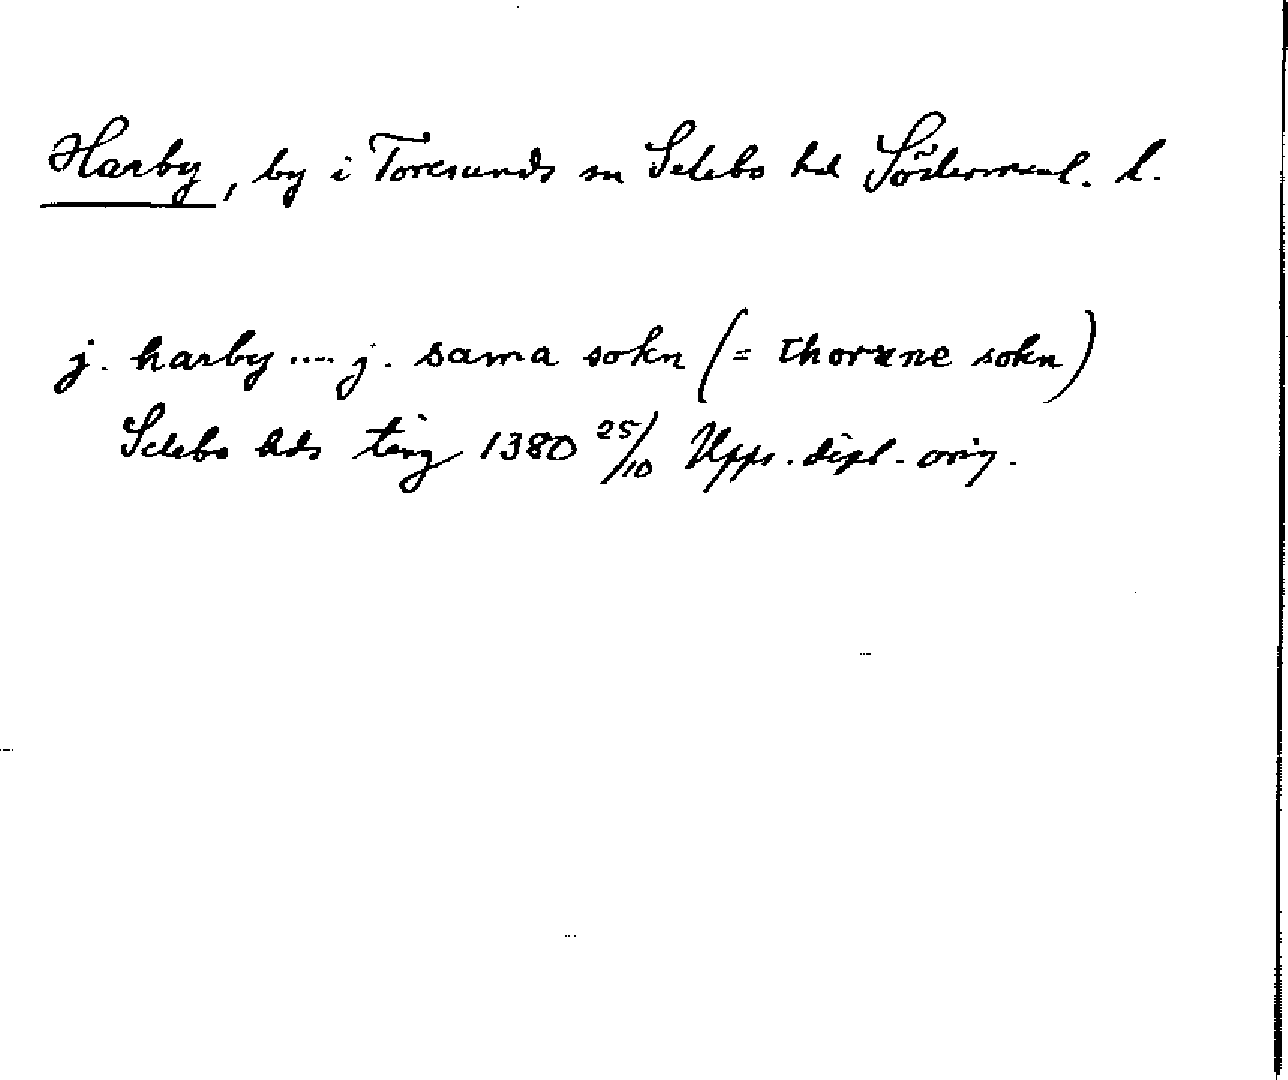 Harby, by i Toresunds sn Selebo hd Södermanl. l.
j. harby .... j. sama sokn (= thoræne sokn)
Selebo hds ting 1380 25/10 Upps. dipl. orig.